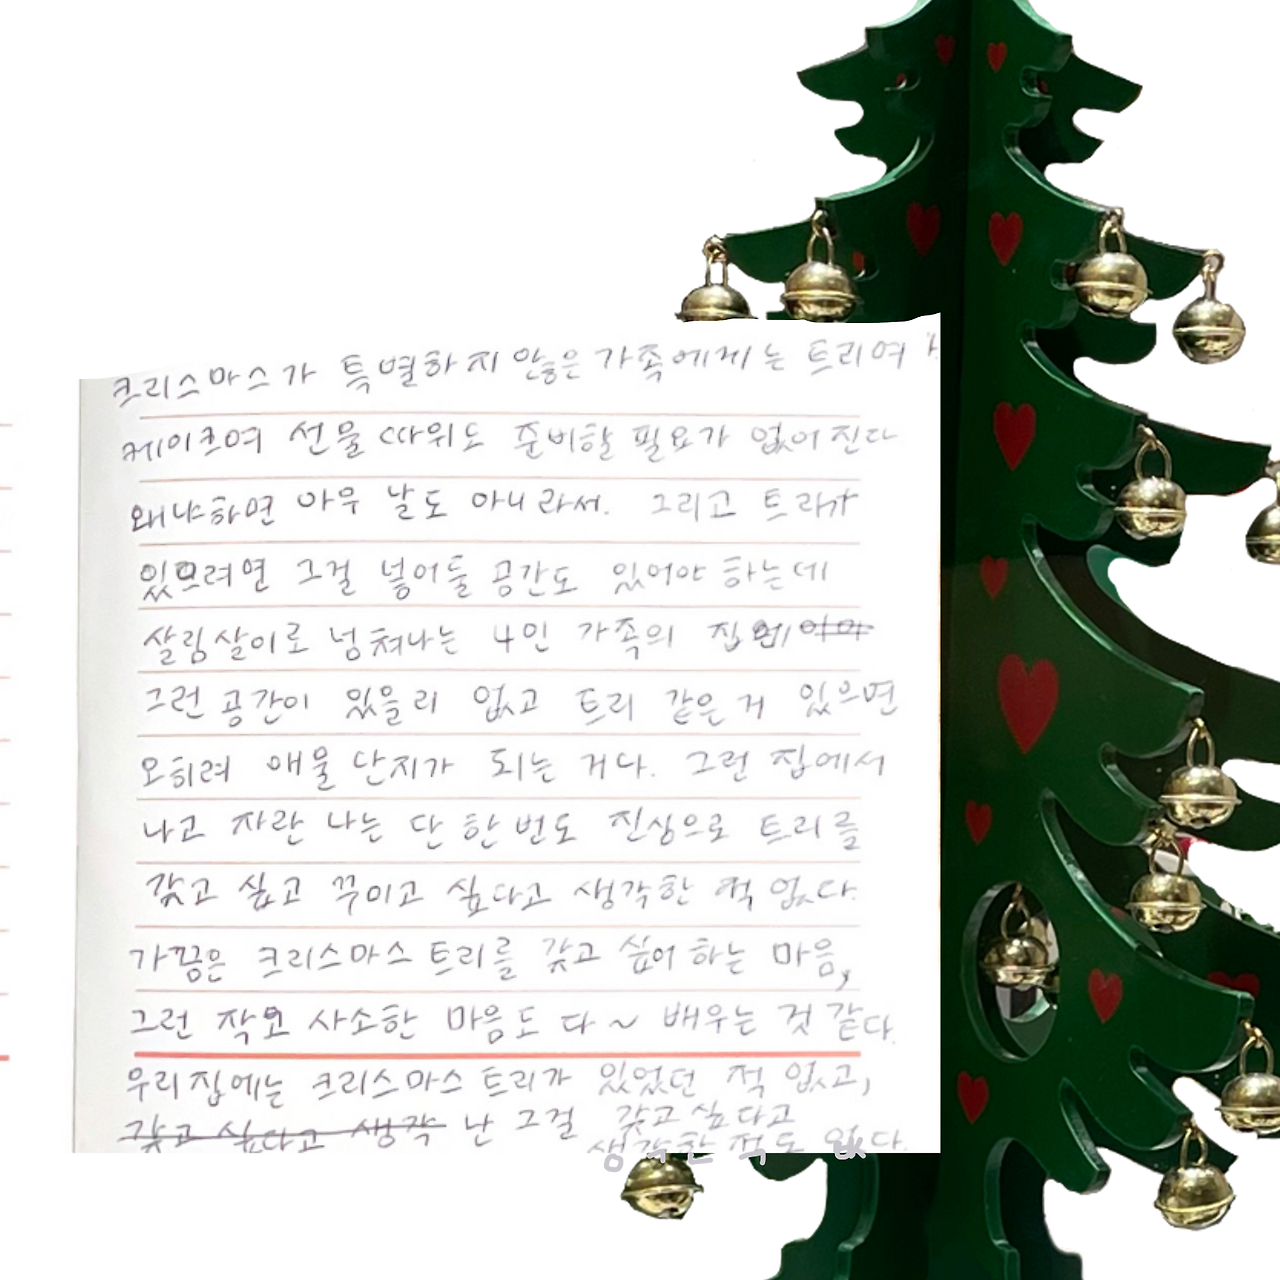 크리스마스가 특별하지 않은 가족에게는 트리여
케이크여 선물 따위도 준비할 필요가 없어진다
왜냐하면 아무 날도 아니라서. 그리고 트리가
있으려면 그걸 넣어둘 공간도 있어야 하는데
살림살이로 넘쳐나는 4인 가족의 집에
그런 공간이 있을리 없고 트리 같은 거 있으면
오히려 애물단지가 되는 거다. 그런 집에서
나고 자란 나는 단 한번도 진심으로 트리를
갖고 싶고 꾸미고 싶다고 생각한 적 없다.
가끔은 크리스마스 트리를 갖고 싶어 하는 마음,
그런 작고 사소한 마음도 다~ 배우는 것 같다.
우리집에는 크리스마스 트리가 있었던 적 없고,
갖고 싶다고 생각 난 그걸 갖고 싶다고
생각한 적도 없다.